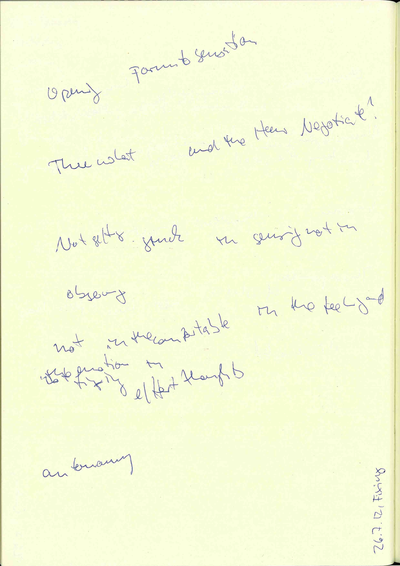 Opening Formats sensation
The what and the How Negotiate?
Not getting stuck in sensing not in
observing
not in the comfortable in the feeling and
in
fixing thoughts
autonomy
26.7.12, Fixing